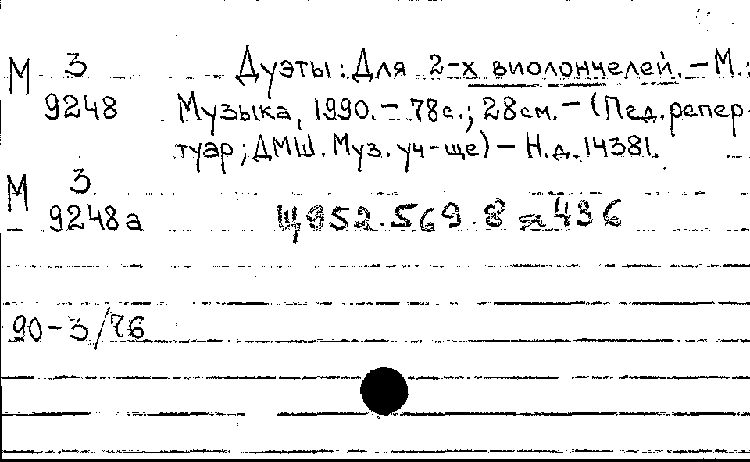 М 3 Дуэты: Для 2-х виолончелей. – М.:
9248 Музыка, 1990. – 78с.; 28см. – (Пед. репер-
туар; ДМШ. Муз. уч-ще) – Н.д. 14381.
М 3
9248а Щ952.569.8я436
90-3/76